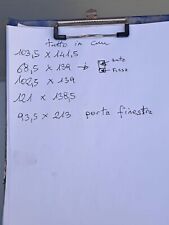 tutto in cm
103,5 x 141,5
68,5 x 139 →
Fisso
102,5 x 139
121 x 138,5
93,5 x 213 porta finestra